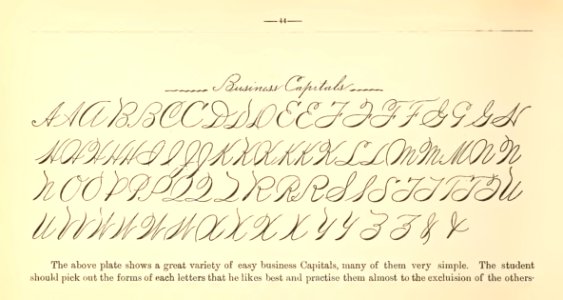 —44—
Business Capitals
A A A B B C C D D D E E F F F F G G G H
H H H H H I I J J K K K K K K L L M M M N N
N O O P P P Q Q Q R R R S S S T T T T T U
U V V W W W W X X X X Y Y Z Z & &
The above plate shows a great variety of easy business Capitals, many of them very simple. The student
should pick out the forms of each letters that he likes best and practise them almost to the excluision of the others-